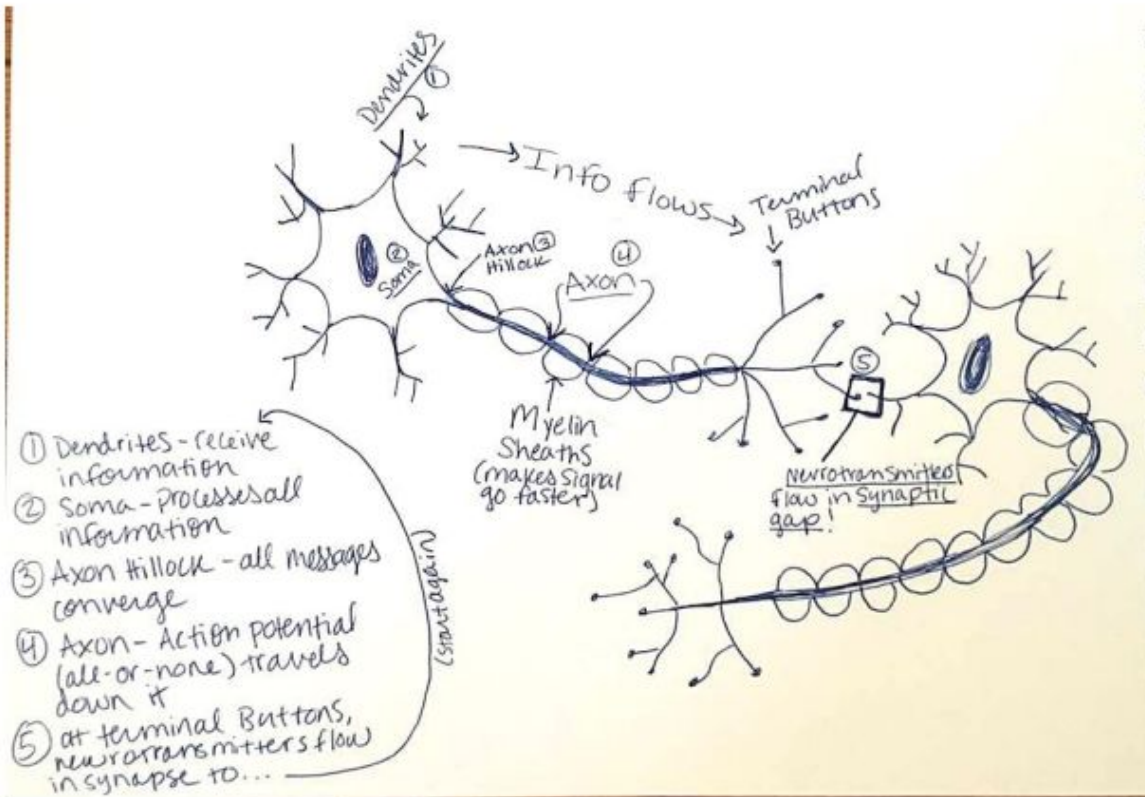 Dendrites
①
→ Info flows →
Terminal
Buttons
②
Soma
Axon ③
Hillock
④
Axon
Myelin
Sheaths
(makes signal
go faster)
⑤
Neurotransmitters
flow in synaptic
gap!
① Dendrites - receive
information
② Soma - Processes all
information
③ Axon Hillock - all messages
converge
④ Axon - Action potential
(all-or-none) travels
down it
⑤ at terminal Buttons,
neurotransmitters flow
in synapse to...
(start again)